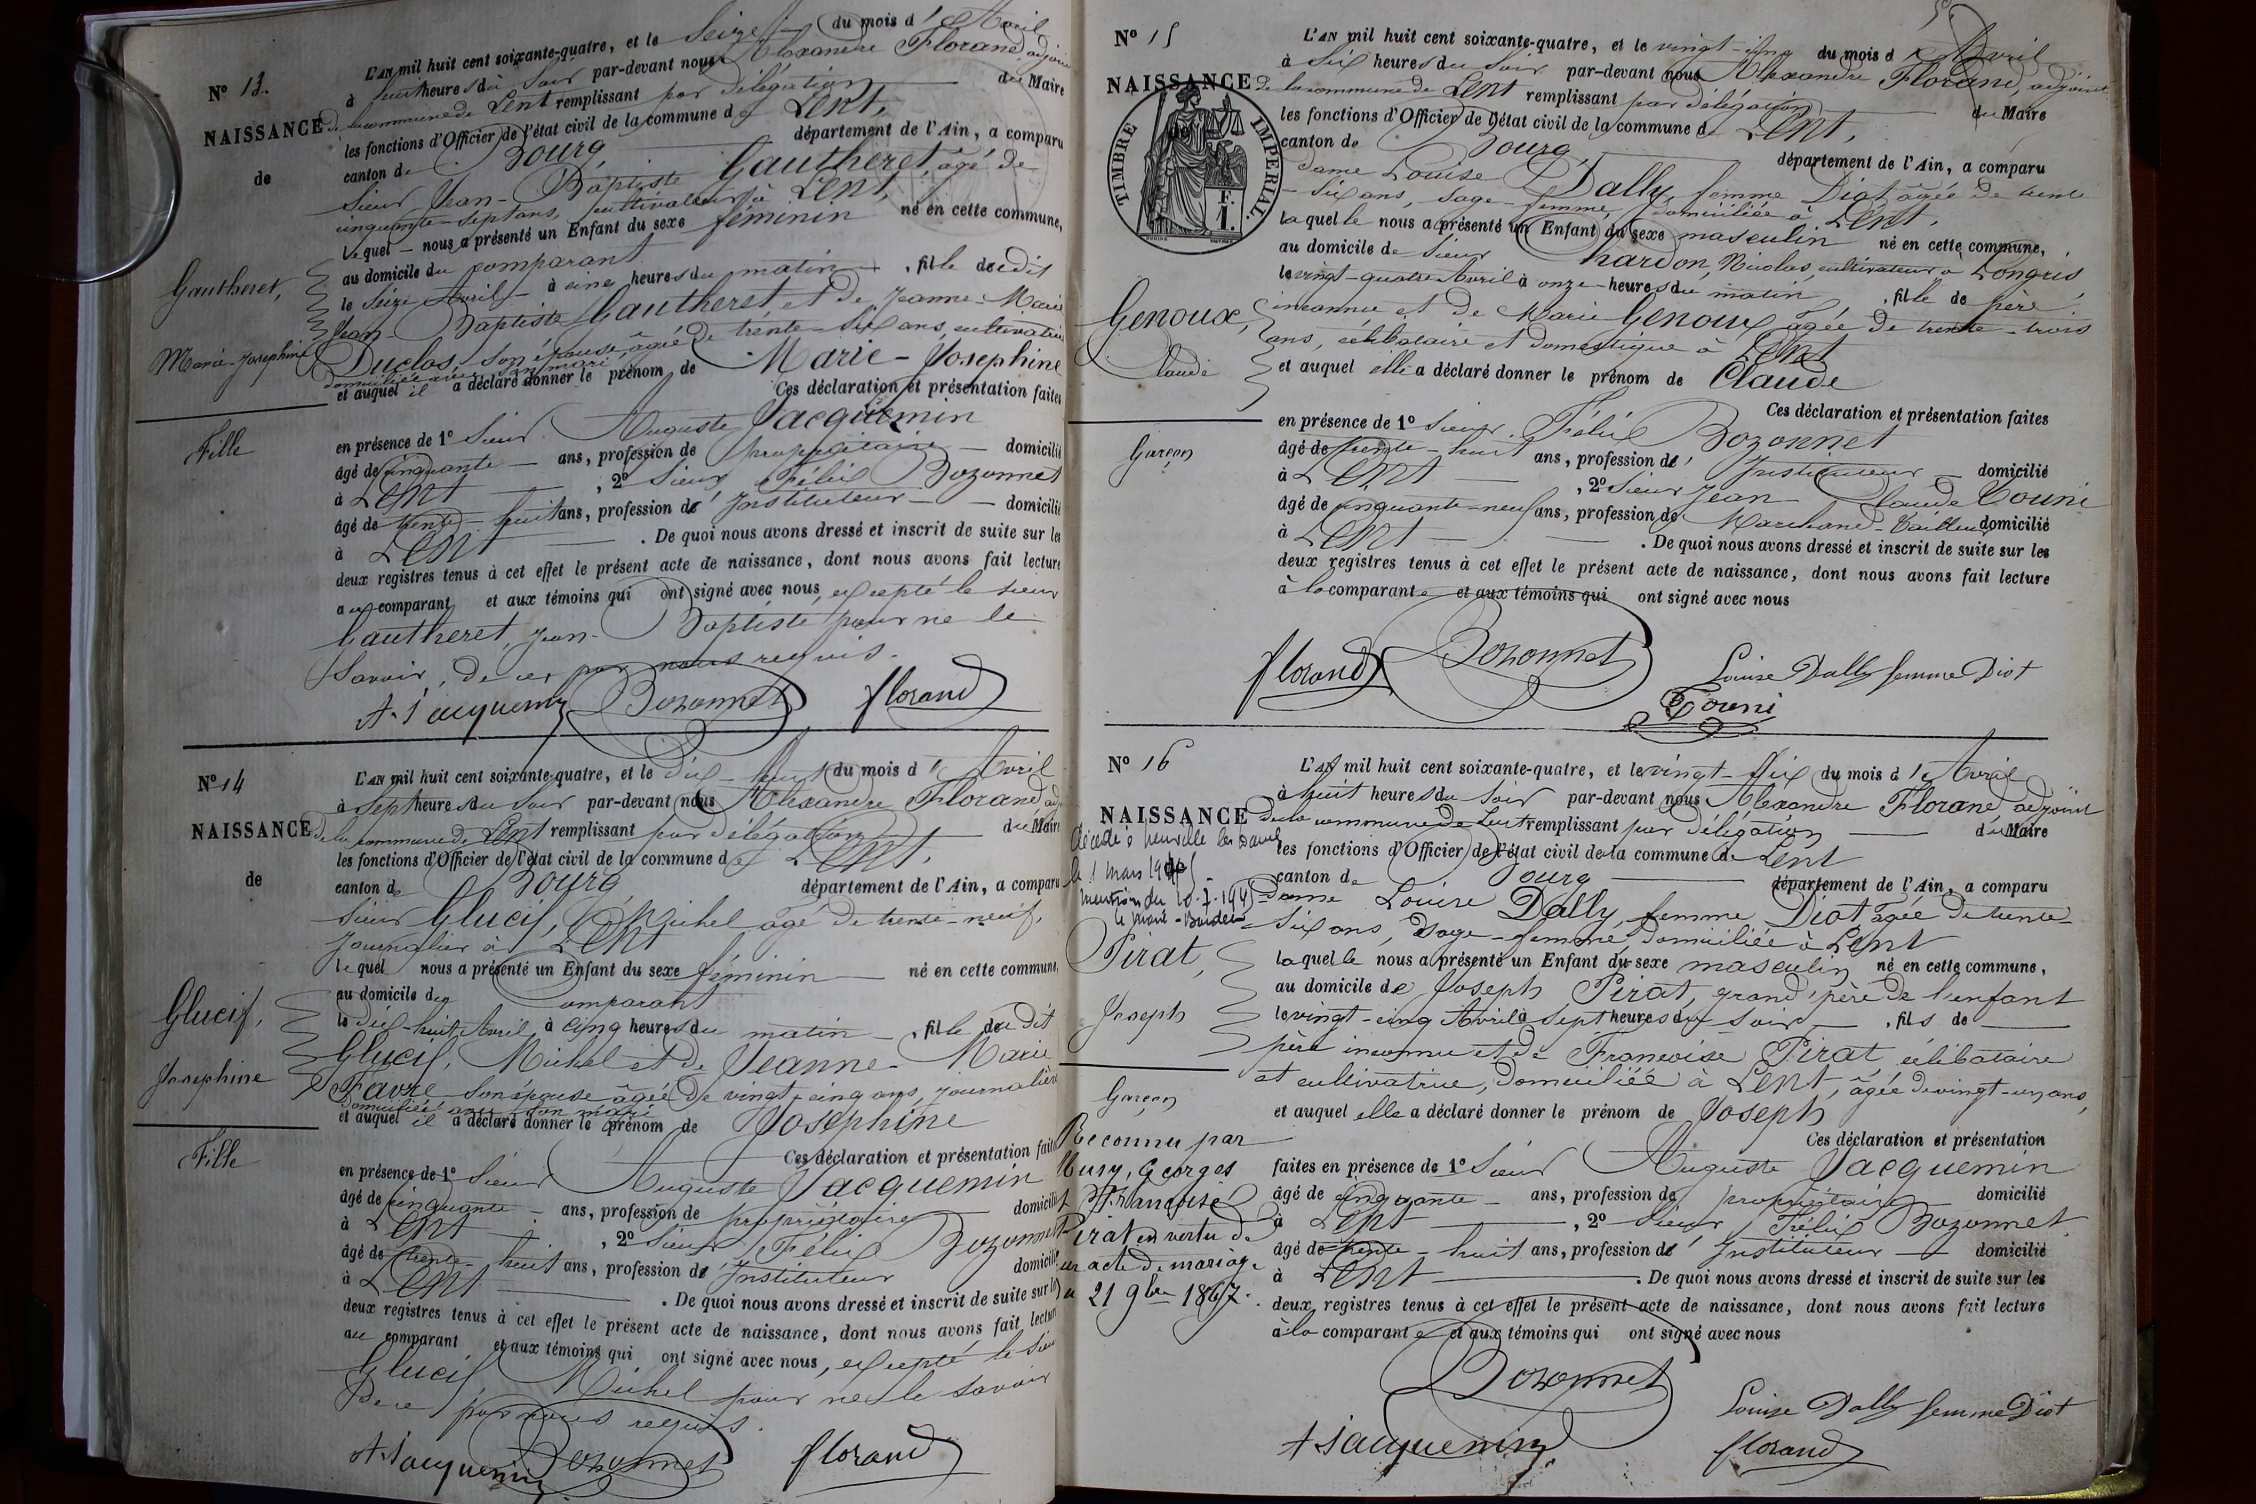 N° 13.
NAISSANCE
de
Gautheret,
Marie-Josephine
Fille
L'AN mil huit cent soixante-quatre, et le Seize du mois d'Avril
à huit heures du Soir par-devant nous Alexandre Florand, adjoint
de la commune de Lent remplissant par délégation du Maire
les fonctions d'Officier de l'état civil de la commune de Lent,
canton de Bourg, département de l'Ain, a comparu
Sieur Jean-Baptiste Gautheret, âgé de
cinquante-sept ans, cultivateur à Lent,
lequel nous a présenté un Enfant du sexe féminin né en cette commune,
au domicile du comparant
le Seize Avril à cinq heures du matin, fille dudit
Jean-Baptiste Gautheret et de Jeanne-Marie
Duclos, son épouse, âgée de trente-six ans, cultivatrice
domiciliée avec son mari
et auquel il a déclaré donner le prénom de Marie-Josephine
Ces déclaration et présentation faites
en présence de 1° Sieur Auguste Jacquemin
âgé de cinquante ans, profession de propriétaire domicilié
à Lent, 2° Sieur Félix Bozonnet
âgé de trente-huit ans, profession d'Instituteur domicilié
à Lent. De quoi nous avons dressé et inscrit de suite sur les
deux registres tenus à cet effet le présent acte de naissance, dont nous avons fait lecture
au comparant et aux témoins qui ont signé avec nous, excepté le sieur
Gautheret, Jean-Baptiste pour ne le
Savoir, de ce par nous requis.
A. Jacquemin Bozonnet florand
N° 14
NAISSANCE
de
Glucif,
Josephine
Fille
L'AN mil huit cent soixante-quatre, et le dix-huit du mois d'Avril
à Sept heures du Soir par-devant nous Alexandre Florand adj
de la commune de Lent remplissant par délégation du Maire
les fonctions d'Officier de l'état civil de la commune de Lent,
canton de Bourg département de l'Ain, a comparu
Sieur Glucif, Michel âgé de trente-neuf,
journalier à Lent
lequel nous a présenté un Enfant du sexe féminin né en cette commune,
au domicile du Comparant
le dix-huit Avril à cinq heures du matin, fille dudit
Glucif, Michel et de Jeanne-Marie
Favre son épouse âgée de vingt-cinq ans, journalière
domiciliée avec son mari
et auquel il a déclaré donner le prénom de Josephine
Ces déclaration et présentation faites
en présence de 1° Sieur Auguste Jacquemin
âgé de cinquante ans, profession de propriétaire domicilié
à Lent, 2° Sieur Félix Bozonnet
âgé de trente-huit ans, profession d'Instituteur domicilié
à Lent. De quoi nous avons dressé et inscrit de suite sur les
deux registres tenus à cet effet le présent acte de naissance, dont nous avons fait lecture
au comparant et aux témoins qui ont signé avec nous, excepté le Sieur
Glucif Michel pour ne le savoir
De ce par nous requis.
A Jacquemin Bozonnet florand
N° 15
NAISSANCE
de
TIMBRE IMPÉRIAL.
F.
1.
Genoux,
Claude
Garçon
L'AN mil huit cent soixante-quatre, et le vingt-cinq du mois d'Avril
à Six heures du Soir par-devant nous Alexandre Florand, adjoint
de la commune de Lent remplissant par délégation du Maire
les fonctions d'Officier de l'état civil de la commune de Lent,
canton de Bourg département de l'Ain, a comparu
dame Louise Dally, femme Diot âgée de trente
-six ans, sage-femme, domiciliée à Lent,
laquelle nous a présenté un Enfant du sexe masculin né en cette commune,
au domicile de Sieur Chardon, Nicolas, cultivateur à Longris
le vingt-quatre Avril à onze heures du matin, fils de père
inconnu et de Marie Genoux âgée de trente-trois
ans, célibataire et domestique à Lent
et auquel elle a déclaré donner le prénom de Claude
Ces déclaration et présentation faites
en présence de 1° Sieur Félix Bozonnet
âgé de trente-huit ans, profession d'Instituteur domicilié
à Lent, 2° Sieur Jean-Claude Touni
âgé de cinquante-neuf ans, profession de Marchand-Tailleur domicilié
à Lent. De quoi nous avons dressé et inscrit de suite sur les
deux registres tenus à cet effet le présent acte de naissance, dont nous avons fait lecture
à la comparante et aux témoins qui ont signé avec nous
florand Bozonnet Louise Dally femme Diot
Touni
N° 16
NAISSANCE
décédé à Neuville les Dames
le 1 mars 1945
mention du 10-7-1945
le maire
Pirat,
Joseph
Garçon
Reconnu par
Musy, Georges
et Françoise
Pirat en vertu de
un acte de mariage
du 21 9bre 1867.
L'AN mil huit cent soixante-quatre, et le vingt-six du mois d'Avril
à huit heures du Soir par-devant nous Alexandre Florand adjoint
de la commune de Lent remplissant par délégation du Maire
les fonctions d'Officier de l'état civil de la commune de Lent
canton de Bourg département de l'Ain, a comparu
Dame Louise Dally, femme Diot âgée de trente-
Six ans, Sage-femme, domiciliée à Lent
laquelle nous a présenté un Enfant du sexe masculin né en cette commune,
au domicile de Joseph Pirat, grand'père de l'enfant
le vingt-cinq Avril à Sept heures du soir, fils de
père inconnu et de Françoise Pirat célibataire
et cultivatrice, domiciliée à Lent, âgée de vingt-un ans,
et auquel elle a déclaré donner le prénom de Joseph
Ces déclaration et présentation
faites en présence de 1° Sieur Auguste Jacquemin
âgé de cinquante ans, profession de propriétaire domicilié
à Lent, 2° Sieur Félix Bozonnet
âgé de trente-huit ans, profession d'Instituteur domicilié
à Lent. De quoi nous avons dressé et inscrit de suite sur les
deux registres tenus à cet effet le présent acte de naissance, dont nous avons fait lecture
à la comparante et aux témoins qui ont signé avec nous
Bozonnet
A Jacquemin Louise Dally femme Diot
florand